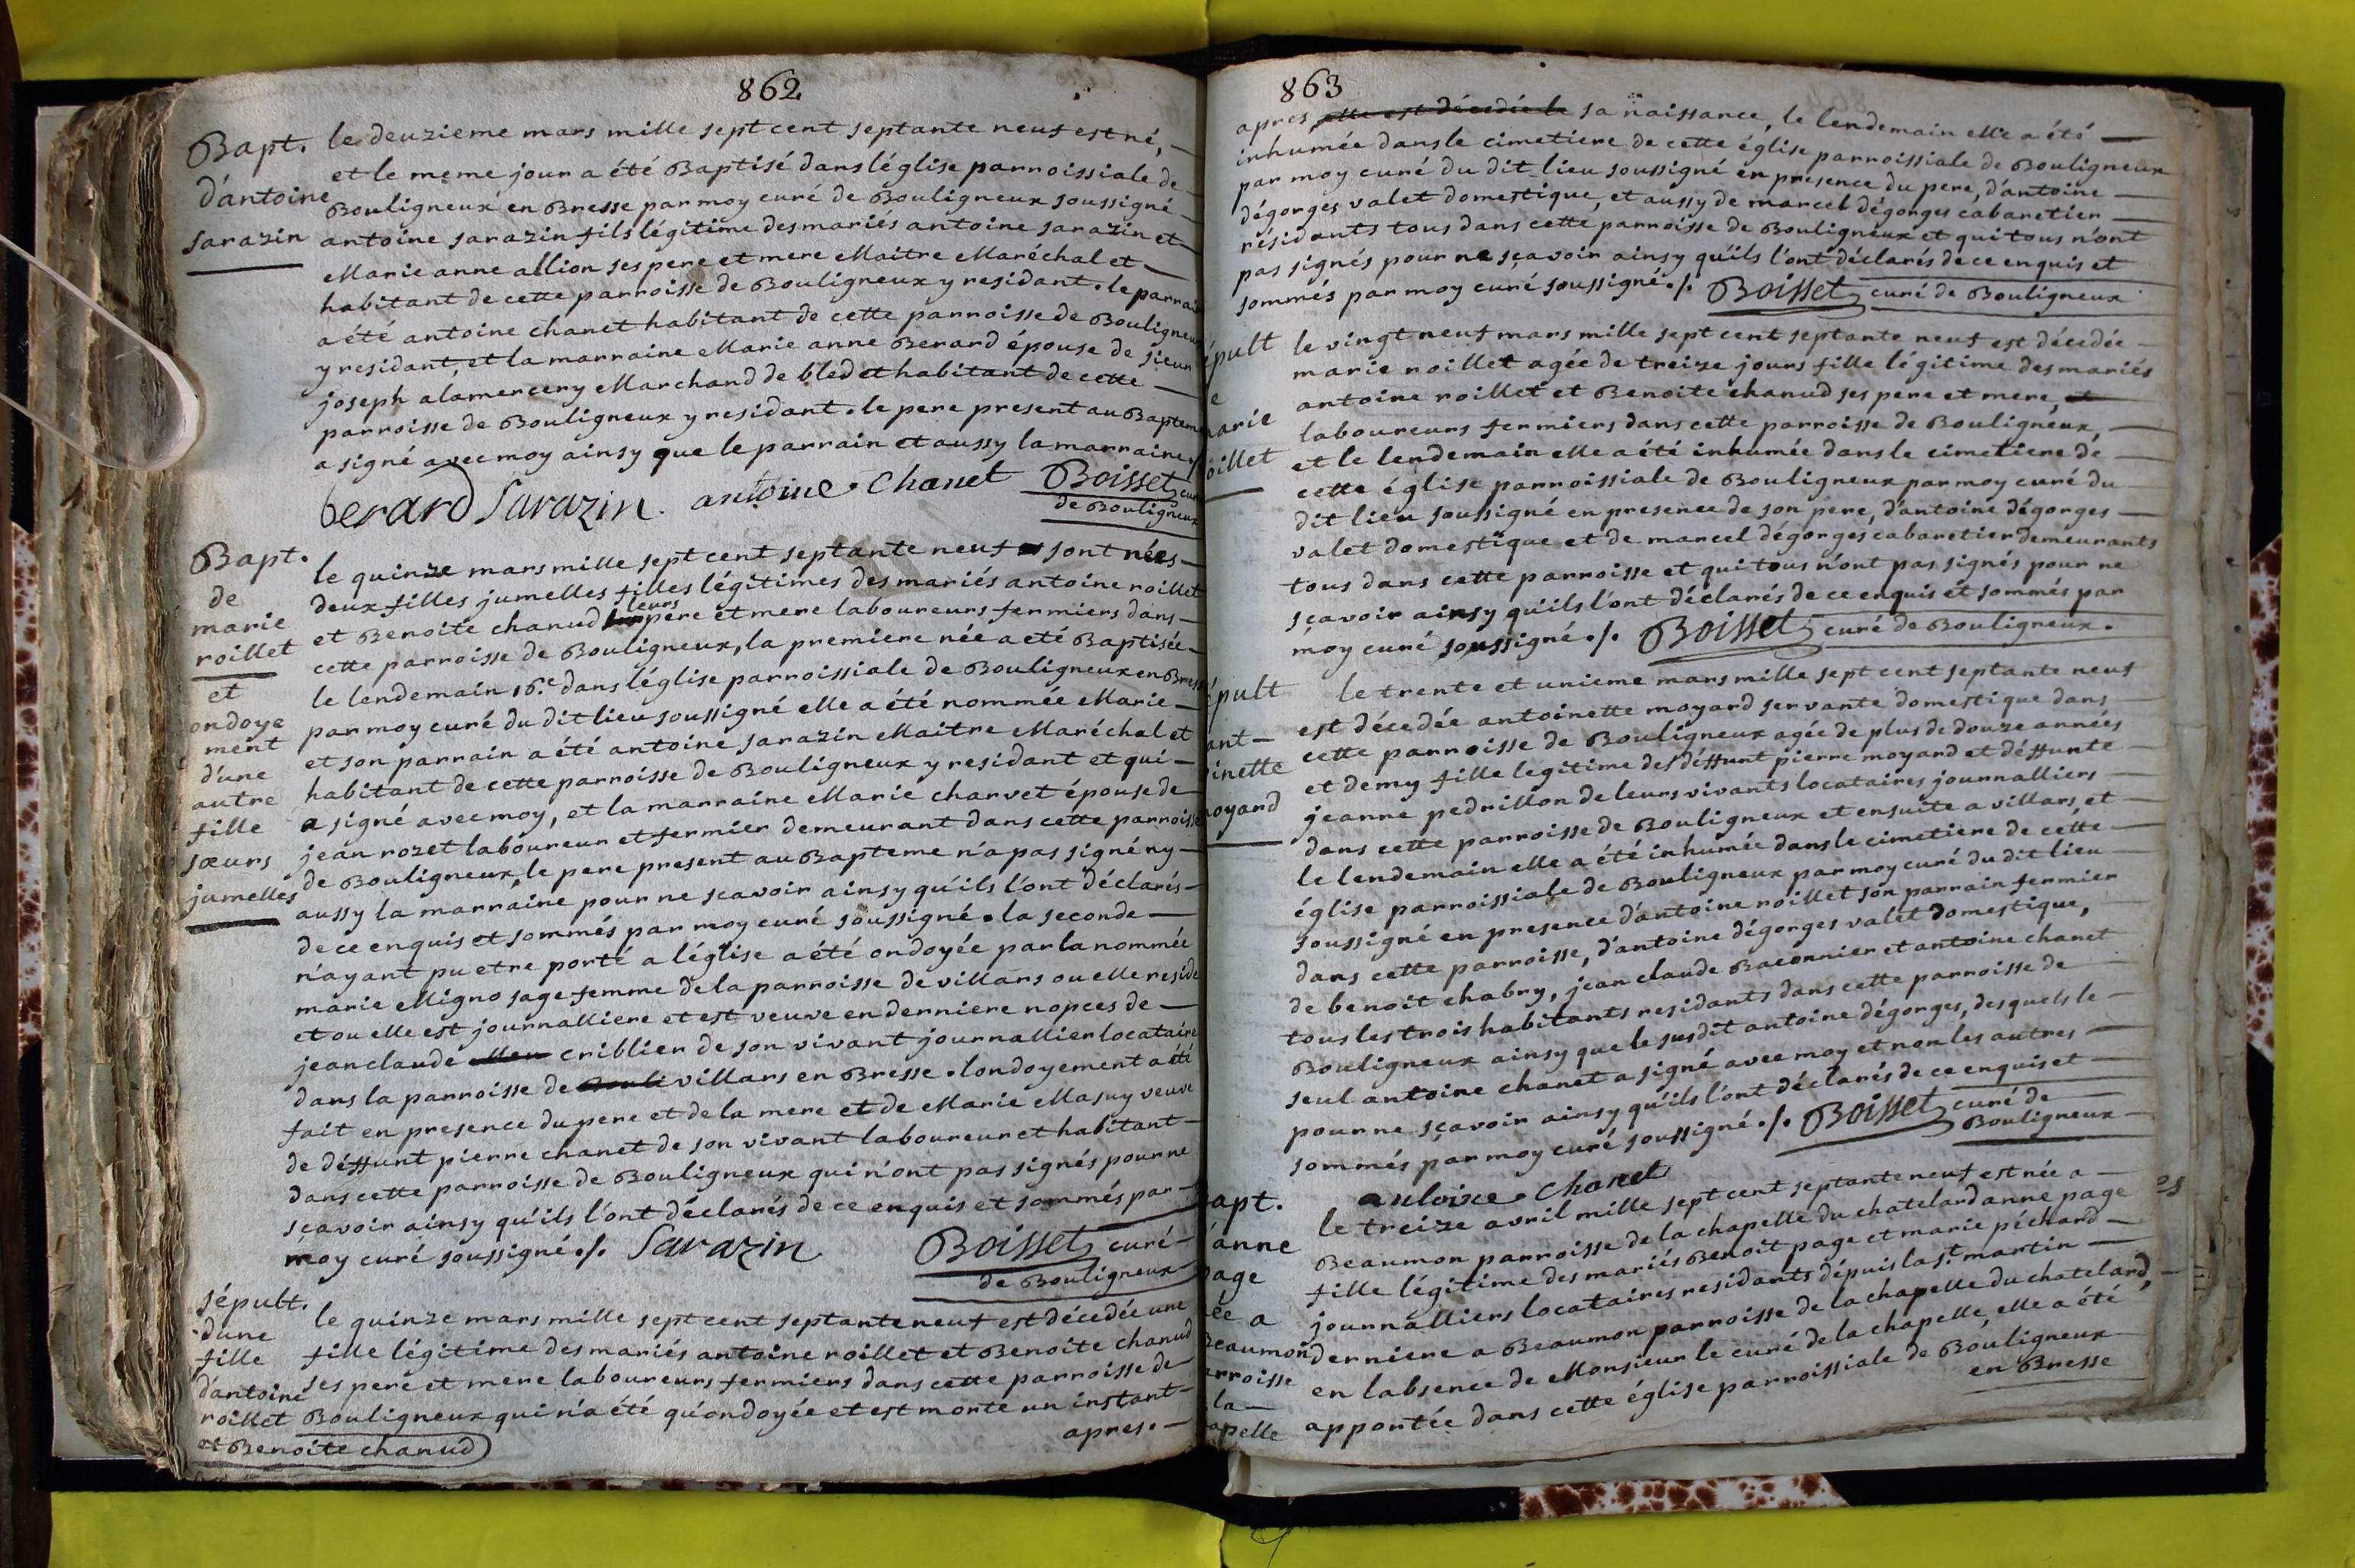 862
Bapt.
d'antoine
sarazin
le deuzieme mars mille sept cent septante neuf est né,
et le meme jour a été Baptisé dans léglise parroissiale de
Bouligneux en Bresse par moy curé de Bouligneux soussigné
antoine sarazin fils légitime des mariés antoine sarazin et
Marie anne allion ses pere et mere Maitre Maréchal et
habitant de cette parroisse de Bouligneux y residant. le parrain
a été antoine chanet habitant de cette parroisse de Bouligneux
y residant, et la marraine Marie anne Berard épouse de sieur
joseph alamercery Marchand de bled et habitant de cette
parroisse de Bouligneux y residant. le pere present au Bapteme
a signé avec moy ainsy que le parrain et aussy la marraine
berard Sarazin. antoine Chanet Boisset curé
de Bouligneux
Bapt.
de
marie
roillet
et
ondoye
ment
d'une
autre
fille
sœurs
jumelles
le quinze mars mille sept cent septante neuf sont nées
deux filles jumelles filles légitimes des mariés antoine roillet
et Benoite chanud leurs pere et mere laboureurs fermiers dans
cette parroisse de Bouligneux, la premiere née a eté Baptisée
le lendemain 16.e dans léglise parroissiale de Bouligneux en Bresse
par moy curé du dit lieu soussigné elle a été nommée Marie
et son parrain a été antoine sarazin Maitre Maréchal et
habitant de cette parroisse de Bouligneux y residant et qui
a signé avec moy, et la marraine Marie charvet épouse de
jean rozet laboureur et fermier demeurant dans cette parroisse
de Bouligneux, le pere present au Bapteme n'a pas signé ny
aussy la marraine pour ne scavoir ainsy qu'ils l'ont déclarés
de ce enquis et sommés par moy curé soussigné. la seconde
n'ayant pu etre porté a léglise a été ondoyée par la nommée
marie Migno sage femme de la parroisse de villars ou elle reside
et ou elle est journalliere et est veuve en derniere nopces de
jean claude criblier de son vivant journallier locataire
dans la parroisse de Bouli villars en Bresse. londoyement a été
fait en presence du pere et de la mere et de Marie Masuy veuve
de déffunt pierre chanet de son vivant laboureur et habitant
dans cette parroisse de Bouligneux qui n'ont pas signés pour ne
sçavoir ainsy qu'ils l'ont déclarés de ce enquis et sommés par
moy curé soussigné ./. Sarazin Boisset curé
de Bouligneux
sépult.
dune
fille
d'antoine
roillet
et Benoite chanud
le quinze mars mille sept cent septante neuf est décedée une
fille légitime des mariés antoine roillet et Benoite chanud
ses pere et mere laboureurs fermiers dans cette parroisse de
Bouligneux qui n'a été qu'ondoyée et est morte un instant
apres.
863
apres elle est décedée le sa naissance, le lendemain elle a été
inhumée dans le cimetiere de cette église parroissiale de Bouligneux
par moy curé du dit lieu soussigné en presence du pere, d'antoine
dégorges valet domestique, et aussy de marcel dégorges cabaretier
résidants tous dans cette parroisse de Bouligneux et qui tous n'ont
pas signés pour ne sçavoir ainsy qu'ils l'ont déclarés de ce enquis et
sommés par moy curé soussigné ./. Boisset curé de Bouligneux
épult
e
arie
oillet
le vingt neuf mars mille sept cent septante neuf est décedée
marie roillet agée de treize jours fille légitime des mariés
antoine roillet et Benoite chanud ses pere et mere, et
laboureurs fermiers dans cette parroisse de Bouligneux,
et le lendemain elle a été inhumée dans le cimetiere de
cette église parroissiale de Bouligneux par moy curé du
dit lieu soussigné en presence de son pere, d'antoine dégorges
valet domestique et de marcel dégorges cabaretier demeurants
tous dans cette parroisse et qui tous n'ont pas signés pour ne
sçavoir ainsy qu'ils l'ont déclarés de ce enquis et sommés par
moy curé soussigné ./. Boisset curé de Bouligneux.
épult
ant
inette
oyard
le trente et unieme mars mille sept cent septante neuf
est décedée antoinette moyard servante domestique dans
cette parroisse de Bouligneux agée de plus de douze années
et demy fille legitime des déffunt pierre moyard et déffunte
jeanne pedrillon de leurs vivants locataires journalliers
dans cette parroisse de Bouligneux et ensuite a villars, et
le lendemain elle a été inhumée dans le cimetiere de cette
église parroissiale de Bouligneux par moy curé du dit lieu
soussigné en presence d'antoine roillet son parrain fermier
dans cette parroisse, d'antoine dégorges valet domestique,
de benoit chabry, jean claude Baconnier et antoine chanet
tous les trois habitants residants dans cette parroisse de
Bouligneux ainsy que le susdit antoine dégorges, desquels le
seul antoine chanet a signé avec moy et non les autres
pour ne sçavoir ainsy qu'ils l'ont déclarés de ce enquis et
sommés par moy curé soussigné ./. Boisset curé de
Bouligneux
antoine Chanet
apt.
d'anne
page
ée a
Beaumon
arroisse
la
apelle
le treize avril mille sept cent septante neuf est née a
Beaumon parroisse de la chapelle du chatelard anne page
fille légitime des mariés Benoit page et marie péchard
journalliers locataires residants dépuis la st. martin
derniere a Beaumon parroisse de la chapelle du chatelard,
en labsence de Monsieur le curé de la chapelle, elle a été
apportée dans cette église parroissiale de Bouligneux
en Bresse